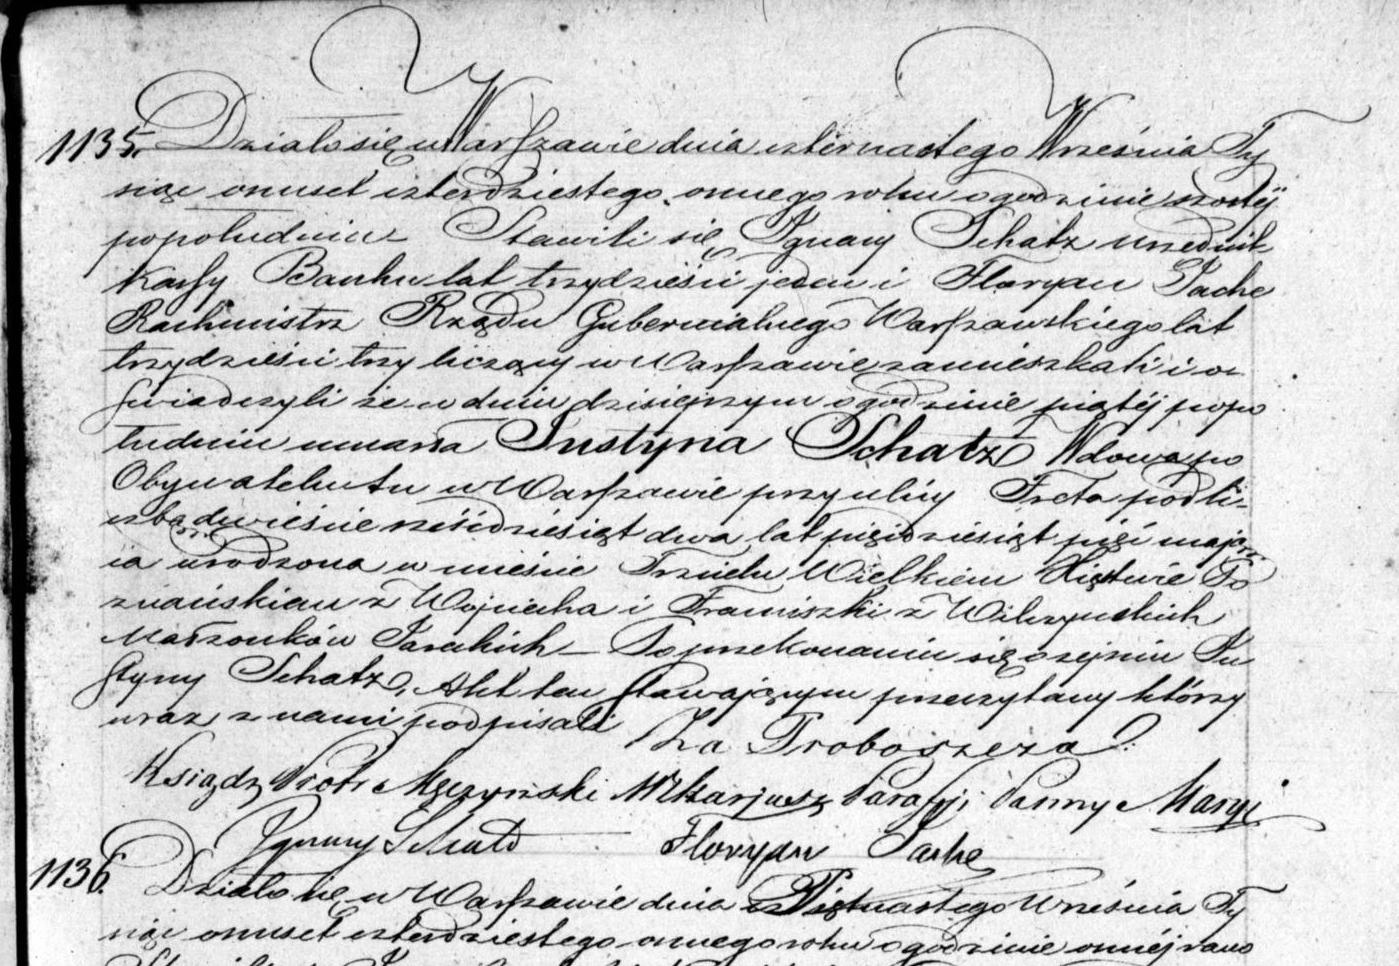 1135. Działo się w Warszawie dnia czternastego Września Ty
siąc osmset czterdziestego osmego roku o godzinie szostéj
popołudniu Stawili się Ignacy Schatz urzędnik
Kassy Banku lat trzydzieści jeden i Floryan Pache
Rachmistrz Rządu Gubernialnego Warszawskiego lat
trzydzieści trzy liczący w Warszawie zamieszkali i o
świadczyli że w dniu dzisiejszym o godzinie piątéj popo
łudniu umarła Justyna Schatz Wdowa po
Obywatelu tu w Warszawie przy ulicy Freta pod li-
czbą dwieście sześćdziesiąt dwa lat pięćdziesiąt pięć mają
ca urodzona w mieście Wielkiem Xięstwie Po
znańskiem z Wojciecha i Franciszki z
Małżonków Po przekonaniu się o zejściu Ju
styny Schatz, Akt ten stawającym przeczytany którzy
wraz z nami podpisali Za Proboszcza
Ksiądz Piotr Męczyński Wikaryusz Parafji Panny Maryi
Ignacy Schatz Floryan Pache
1136. Działo się w Warszawie dnia Piętnastego Września Ty
siąc osmset czterdziestego osmego roku o godzinie osméj rano